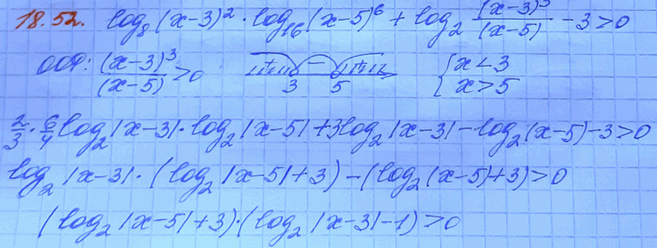 18.52. log₈(x-3)² · log₁₆(x-5)⁶ + log₂ (x-3)³/(x-5) - 3 > 0
ООФ: (x-3)³/(x-5) > 0 + - + 3 5 { x < 3
x > 5
2/3 · 6/4 log₂|x-3| · log₂|x-5| + 3log₂|x-3| - log₂(x-5) - 3 > 0
log₂|x-3| · (log₂|x-5| + 3) - (log₂(x-5) + 3) > 0
(log₂|x-5| + 3) · (log₂|x-3| - 1) > 0